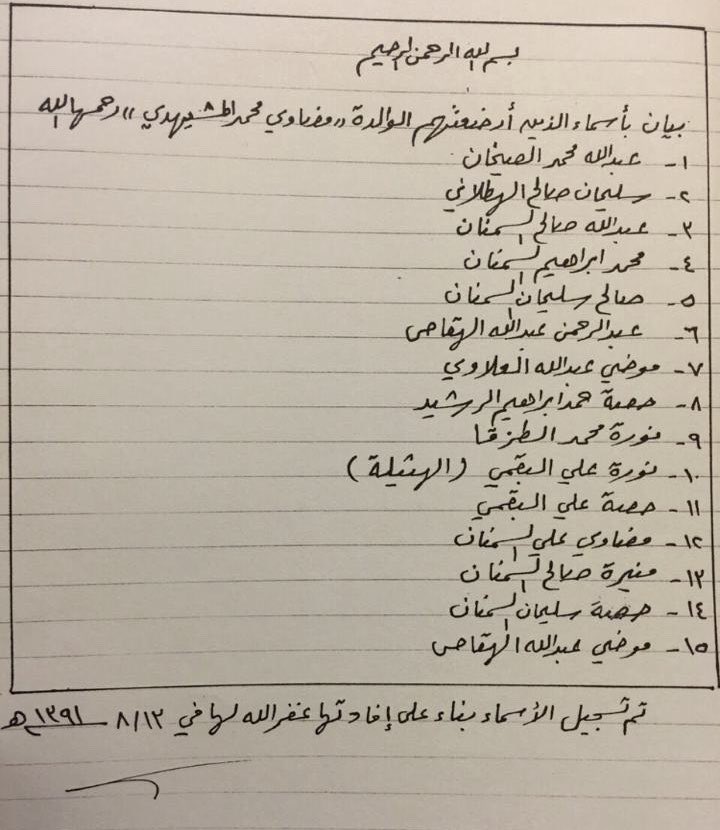 بسم الله الرحمن الرحيم
بيان بأسماء الذين أرضعتهم الوالدة "مضاوي محمد المشيهدي" رحمها الله
١- عبدالله محمد الصيخان
٢- سليمان صالح الهطلاني
٣- عبدالله صالح السمنان
٤- محمد ابراهيم السمنان
٥- صالح سليمان السمنان
٦- عبدالرحمن عبدالله الهقاص
٧- موضي عبدالله العلاوي
٨- حصة حمد ابراهيم الرشيد
٩- نورة محمد الطزقا
١٠- نورة علي البقمي (الهثيلة)
١١- حصة علي البقمي
١٢- مضاوي علي السمنان
١٣- منيرة صالح السمنان
١٤- حصة سليمان السمنان
١٥- موضي عبدالله الهقاص
تم تسجيل الأسماء بناء على إفادتها غفر الله لها في ٨/١٣/ ١٣٩١هـ